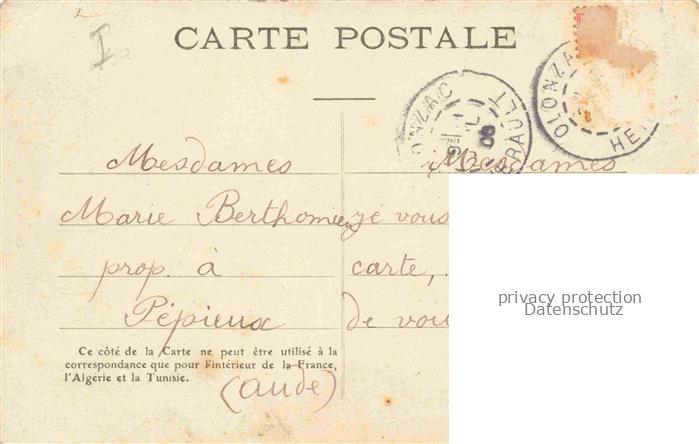 I
CARTE POSTALE
OLONZAC
HÉRAULT
8
OLONZA
HE
Mesdames
Marie Berthomieu
prop. à
Pépieux
(aude)
Mesdames
je vous
carte,
de vou
Ce côté de la Carte ne peut être utilisé à la
correspondance que pour l'intérieur de la France,
l'Algérie et la Tunisie.
privacy protection
Datenschutz